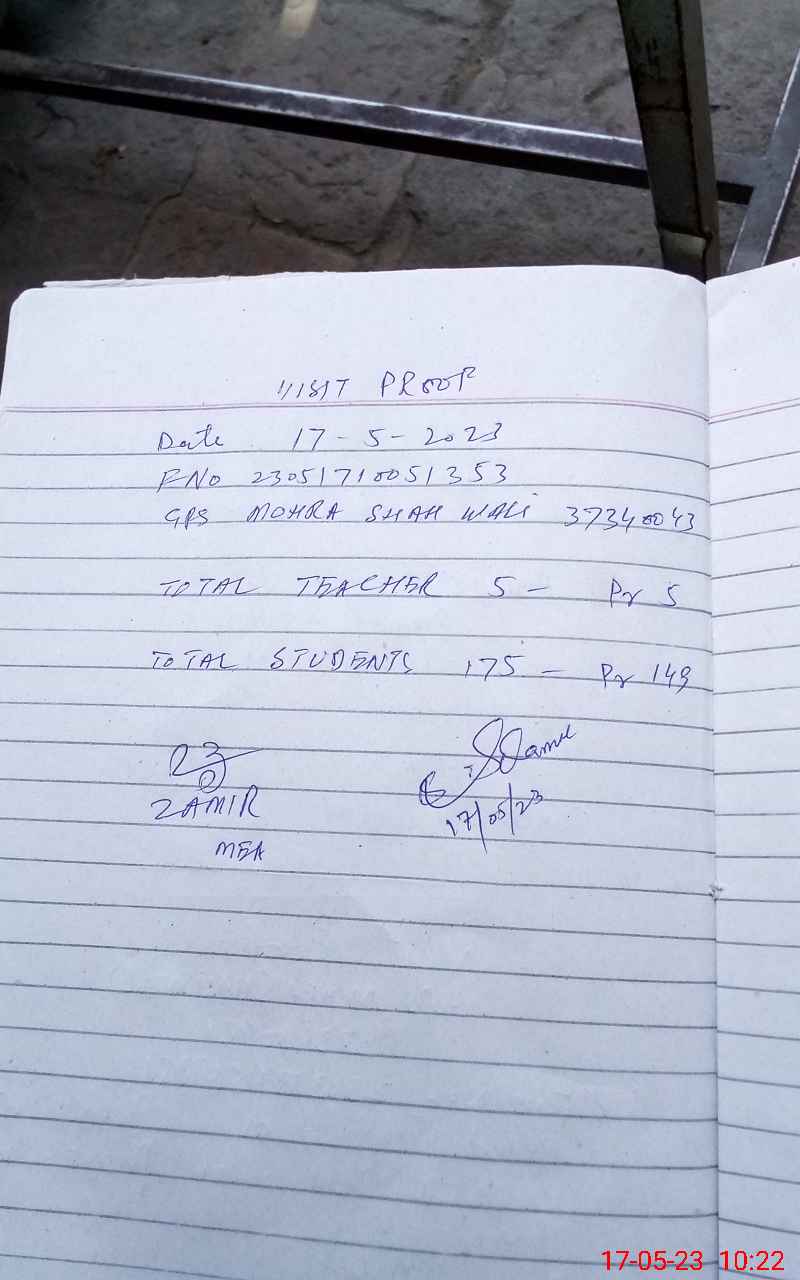 VISIT PROOF
Date 17-5-2023
F No 23051710051353
GPS MOHRA SHAH WALI 37340043
TOTAL TEACHER 5 - Pr 5
TOTAL STUDENTS 175 - Pr 149
ZAMIR
MEA
17/05/23
17-05-23 10:22